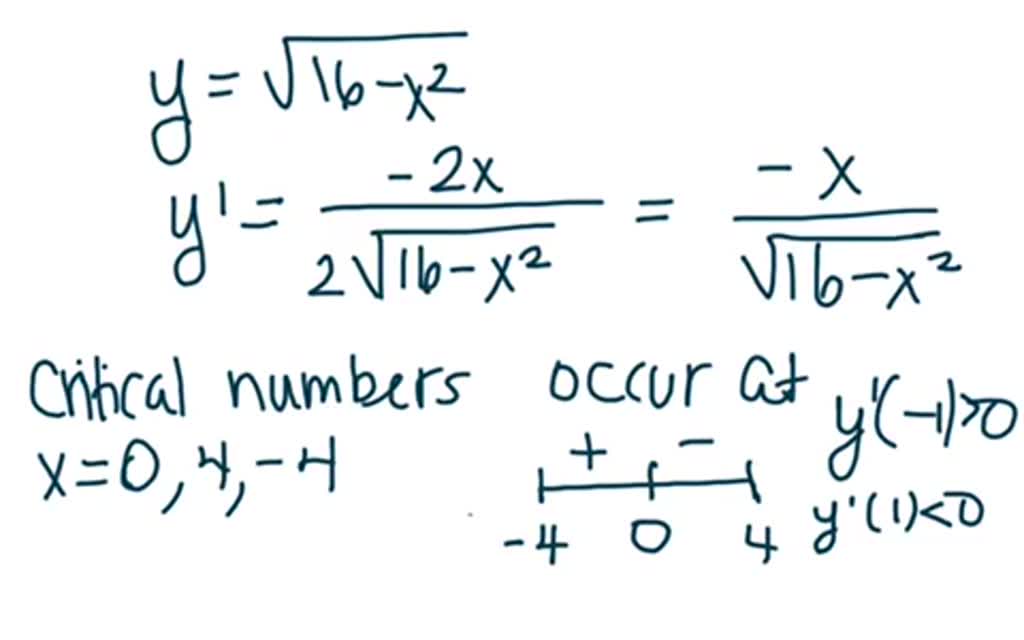 y = √(16-x²)
y' = -2x / (2√(16-x²)) = -x / √(16-x²)
Critical numbers occur at
x=0,4,-4
y'(-1)>0
+ -
-4 0 4
y'(1)<0